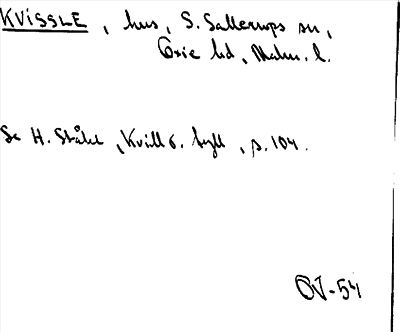 KVISSLE, hus, S. Sallerups sn,
Oxie hd, Malm. l.
Se H. Ståhl, Kvill o. byll, s. 104.
OV-54